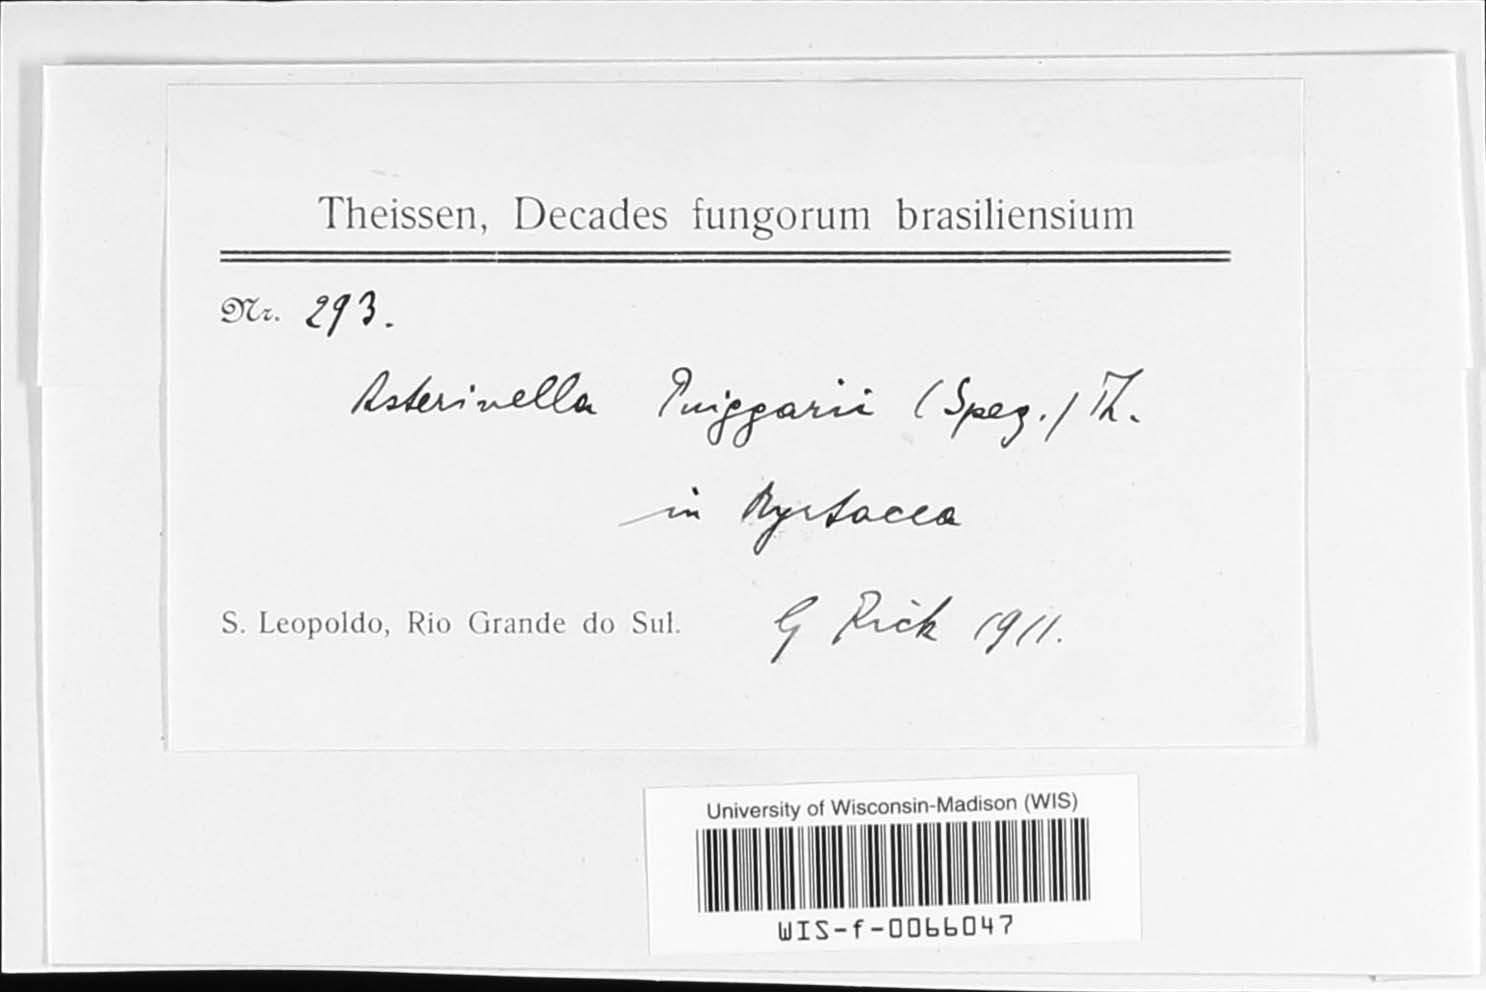 Theissen, Decades fungorum brasiliensium
Nr. 293.
Asterinella Puiggarii (Speg.) Th.
in Myrtacea
S. Leopoldo, Rio Grande do Sul. G Rick 1911.
University of Wisconsin-Madison (WIS)
WIS-f-0066047